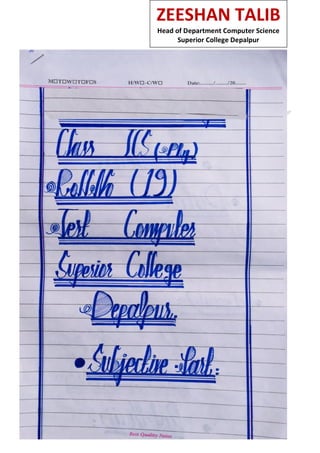 ZEESHAN TALIB
Head of Department Computer Science
Superior College Depalpur
MOTOWOTOFOS H/W O-C/W O Date:____/____/20____
Class ICS (Phy)
Roll No (19)
Test Computer
Superior College
Depalpur.
Subjective Part.
Best Quality Paper